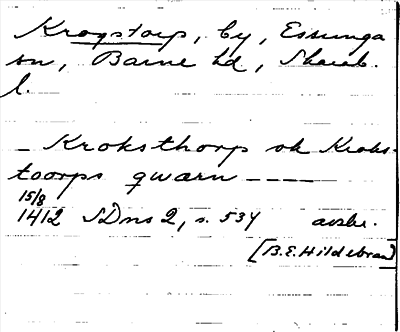 Krogstorp, by, Essunga
sn, Barne hd, Skarab.
l.
_ Kroksthorp ok Kroks-
toorps qwarn ----
15/8
1412 SDns 2, s. 534 avskr.
[B.E. Hildebrand]